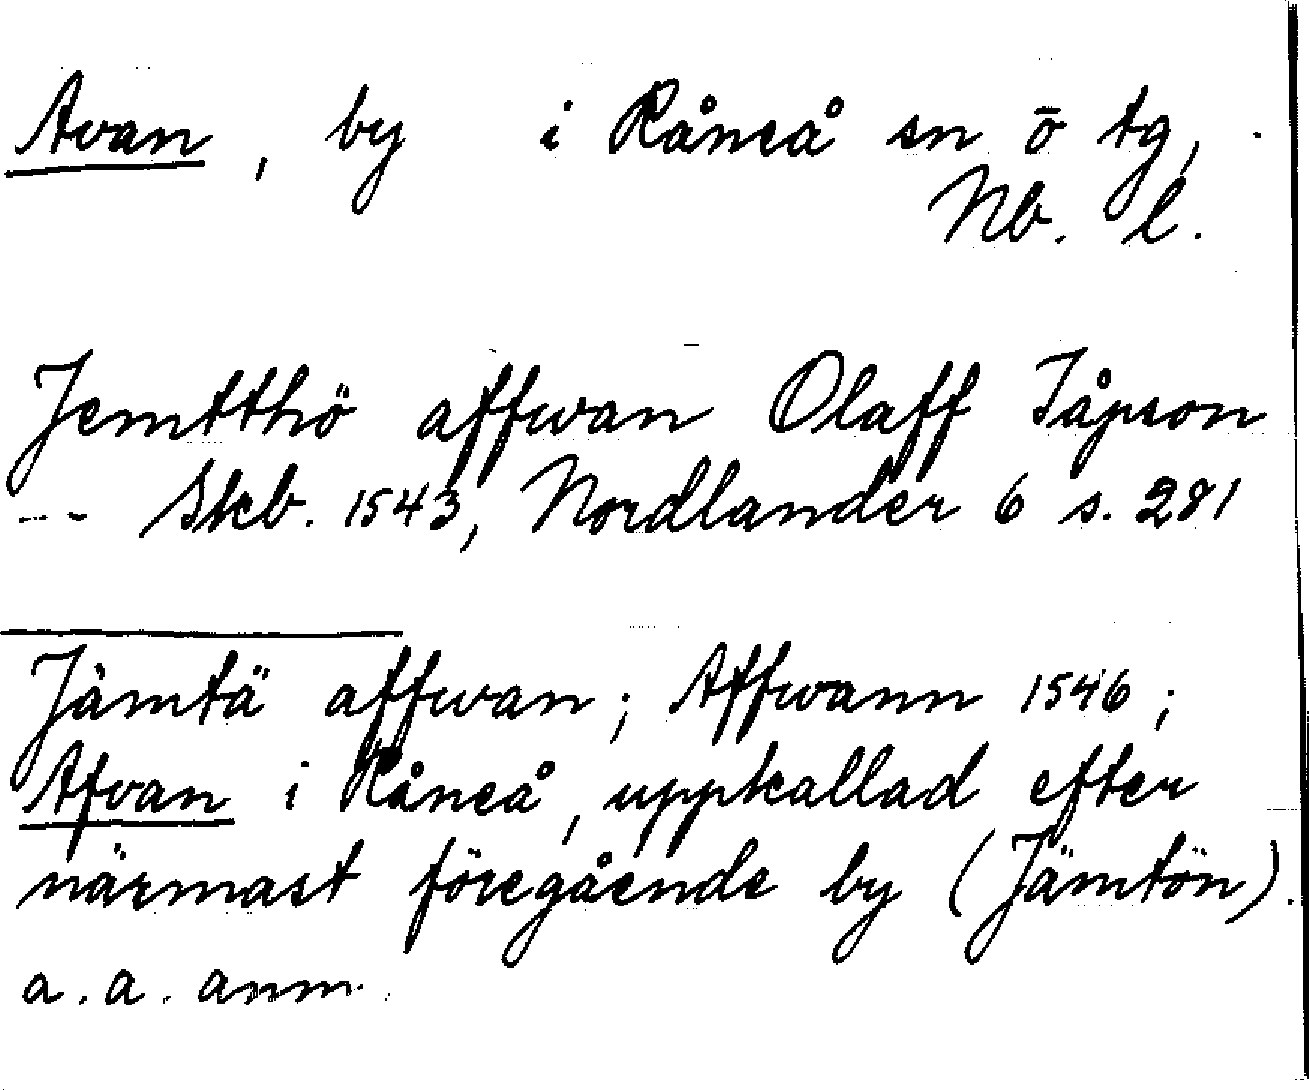 Avan, by i Råneå sn ö tg,
Nb. l.
Jemtthö affwan Olaff Jåpson
--- Skb. 1543, Nordlander 6 s. 281
Jämtä affwan; Affwann 1546;
Afvan i Råneå, uppkallad efter
närmast föregående by (Jämtön).
a. a. anm.